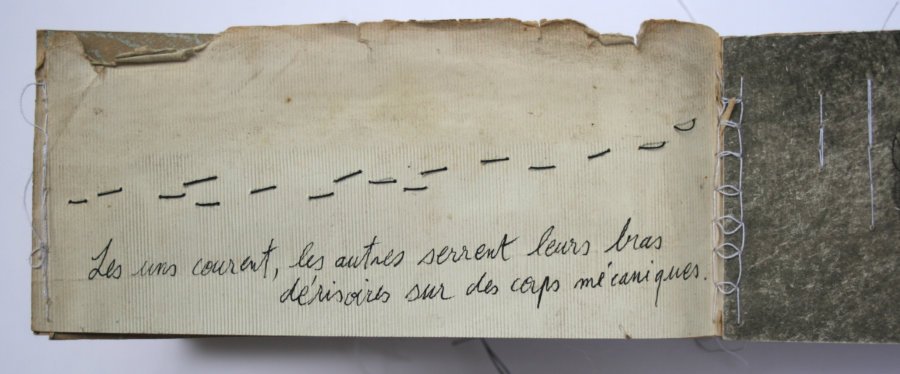 Les uns courent, les autres serrent leurs bras
dérisoires sur des corps mécaniques.